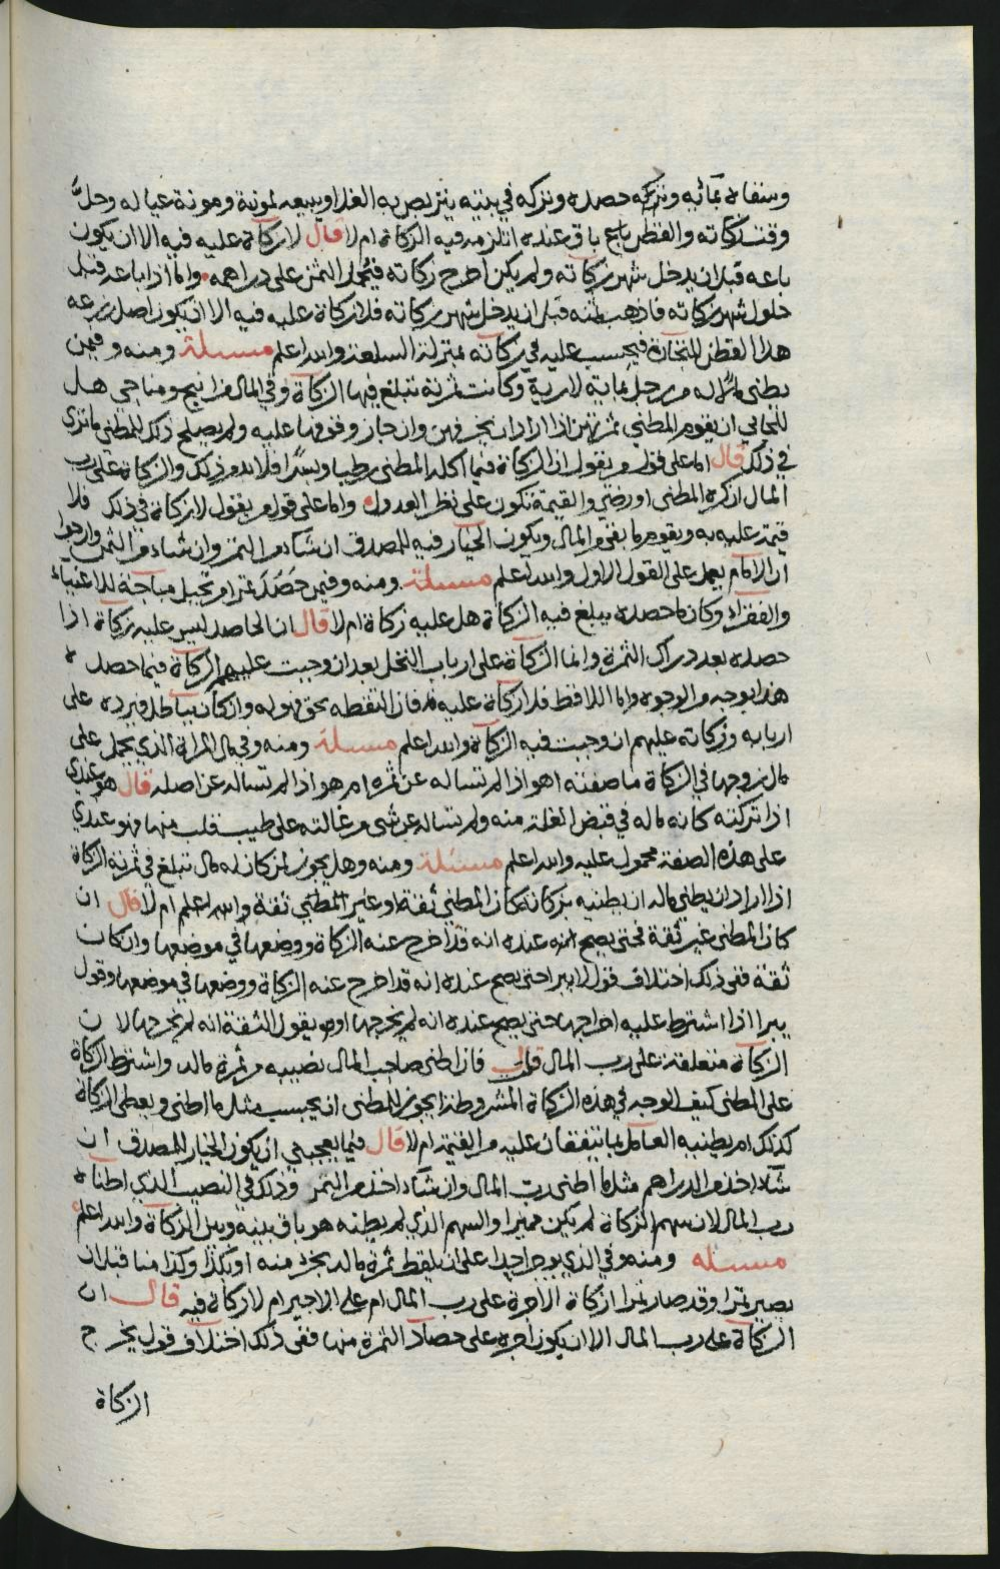 وسقاه بمائه وتركه حصده وتركه في بيته يتربص به الغلا او يبيعه لمونته ومونة عياله وحل
وقت زكاته والقطن باع باق عنده اتلزمه فيه الزكاة ام لا قال لا زكاة عليه فيه الا ان يكون
باعه قبل ان يدخل شهر زكاته ولم يكن اخرج زكاته فيحمل الثمن على دراهمه واما اذا باعه قبل
حلول شهر زكاته فاذهب ثمنه قبل ان يدخل شهر زكاته فلا زكاة عليه فيه الا ان يكون اصل زرعه
هذا القطن للتجارة فيحسب عليه في زكاته بمنزلة السلعة والله اعلم مسئلة ومنه وفيمن
يطني مالا له من رجل بماية لارية وكانت ثمرته تبلغ فيها الزكاة وفي المال مزانيج ومناحي هل
للجابي ان يقوم المطني ثمرتهن اذا اراد ان يخرفهن وان جاز وقومها عليه ولم يصلح ذلك للمطني ما ترى
في ذلك قال اما على قول من يقول ان الزكاة فيما اكله المطني رطبا وبسرا فلا بد من ذلك والزكاة على رب
المال ان كره المطني او رضي والقيمة تكون على نظر العدول واما على قول من يقول لا زكاة في ذلك فلا
قيمة عليه به ويقوم ما بقي من المال ويكون الخيار فيه للمصدق ان شاء من التمر وان شاء من الثمن وارجوا
ان الامام يعمل على القول الاول والله اعلم مسئلة ومنه وفيمن حصد تمرا من نخيل مباحة للاغنياء
والفقراء وكان ما حصده يبلغ فيه الزكاة هل عليه زكاة ام لا قال ان الحاصد ليس عليه زكاة اذا
حصده بعد دراك الثمرة وانما الزكاة على ارباب النخل بعد ان وجبت عليهم الزكاة فيما حصده
هذا بوجه من الوجوه واما اللاقط فلا زكاة عليه فان التقطه بحق فهو له وان كان بباطل فيرده على
اربابه وزكاته عليهم ان وجبت فيه الزكاة والله اعلم مسئلة ومنه وفي مال المراة الذي يحمل على
مال زوجها في الزكاة ما صفته اهو اذا لم تساله عن ثمره ام هو اذا لم تساله عن اصله قال هو عندي
اذا تركته كانه ماله في قبض الغلة منه ولم تساله عن شي من غالته على طيب قلب منها فهو عندي
على هذه الصفة محمول عليه والله اعلم مسئلة ومنه وهل يجوز لمن كان له مال تبلغ في ثمرته الزكاة
اذا اراد ان يطني ماله ان يطنيه بزكاته كان المطني ثقة او غير المطني ثقة والله اعلم ام لا قال ان
كان المطني غير ثقة فحتى يصح معه عنده انه قد اخرج عنه الزكاة ووضعها في موضعها وان كان
ثقة ففي ذلك اختلاف قول لا يبرا حتى يصح عنده انه قد اخرج عنه الزكاة ووضعها في موضعها وقول
يبرا اذا اشترط عليه اخراجها حتى يصح عنده انه لم يخرجها او يقول الثقة انه لم يخرجها لان
الزكاة متعلقة على رب المال قلت فان اطنى صاحب المال نصيبه من ثمرة ماله واشترط الزكاة
على المطني كيف الوجه في هذه الزكاة المشروطة ايجوز للمطني ان يحسب مثل ما اطنى ويعطي الزكاة
كذلك ام يطنيه العامل بما يتفقان عليه من القيمة ام لا قال فيما يعجبني ان يكون الخيار للمصدق ان
شاء اخذ من الدراهم مثل ما اطنى رب المال وان شاء اخذ من التمر وذلك في النصيب الذي اطناه
رب المال لان سهم الزكاة لم يكن مميزا والسهم الذي لم يطنه هو باق بينه وبين الزكاة والله اعلم
مسئله ومنه وفي الذي يوجر اجيرا على ان يلقط ثمرة ماله بجزء منه او بكذا وكذا منا قبل ان
يصير تمرا وقد صار تمرا ازكاة الاجرة على رب المال ام على الاجير ام لا زكاة فيه قال ان
الزكاة على رب المال الا ان يكون اجره على حصاد الثمرة منها ففي ذلك اختلاف قول يخرج
الزكاة